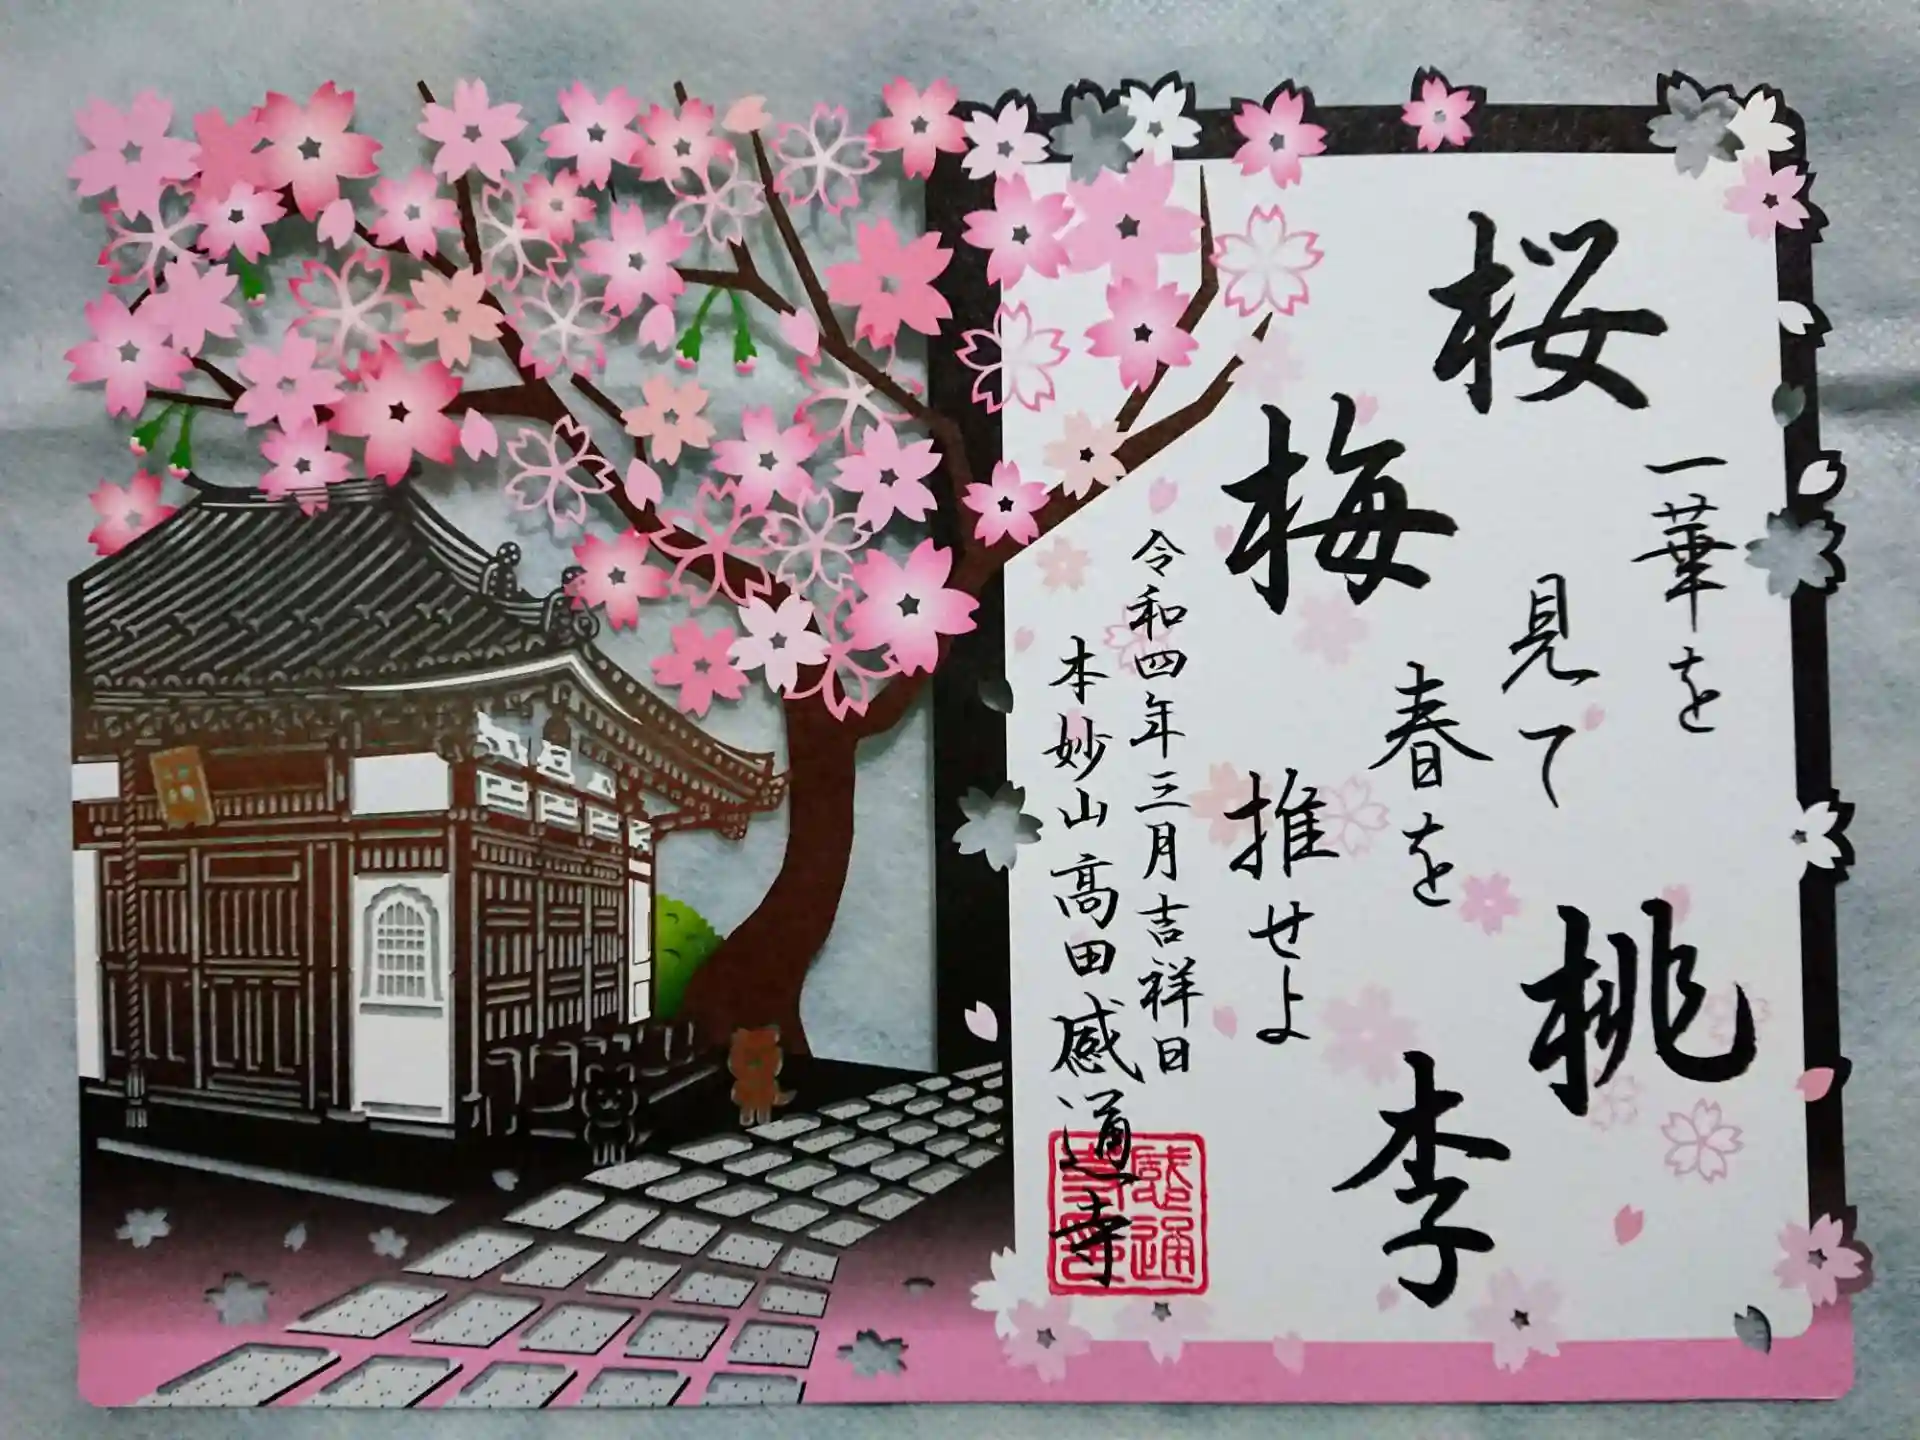 桜梅
桃李
一華を
見て
春を
推せよ
令和四年三月吉祥日
本妙山高田感通寺
感通
寺印